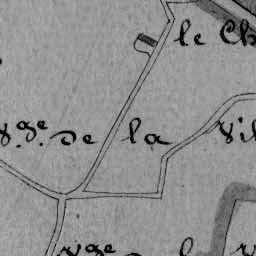 le Ch
V.ge de la Vil
V.ge